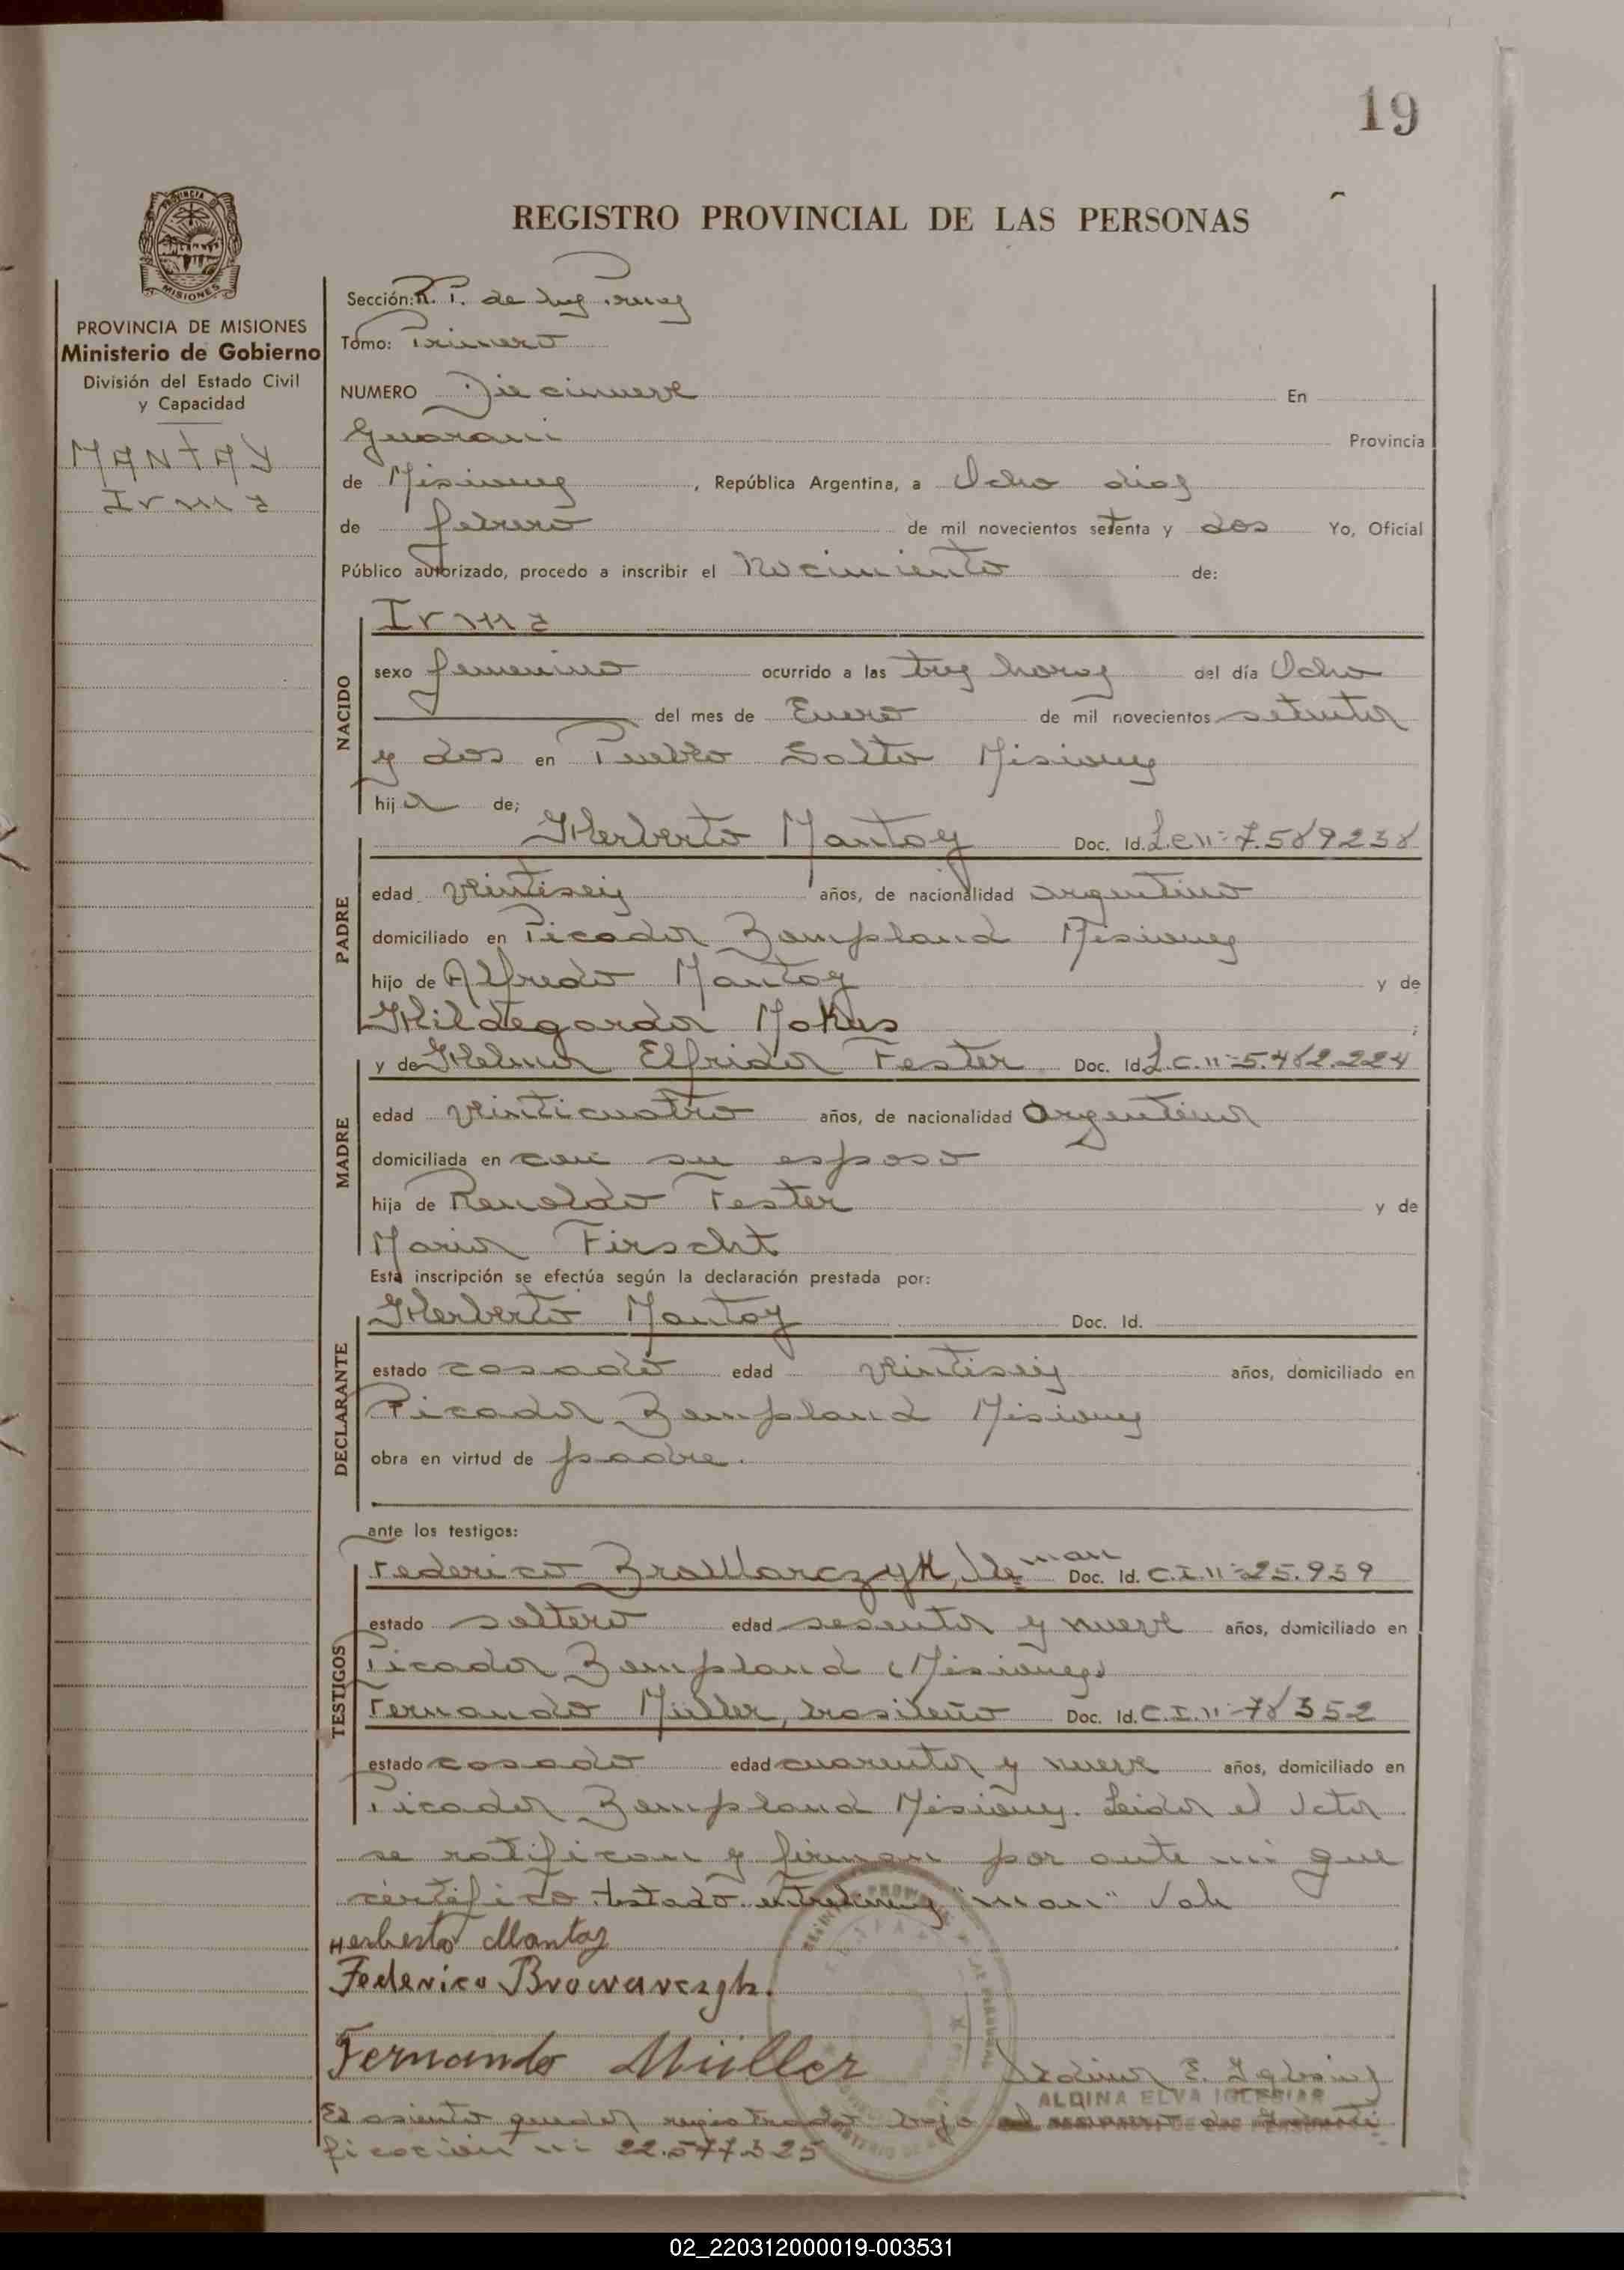 19
REGISTRO PROVINCIAL DE LAS PERSONAS
PROVINCIA DE MISIONES
Ministerio de Gobierno
División del Estado Civil
y Capacidad
MANTAY
Irma
Sección: R. P. de las
Tomo: Primero
NUMERO Diecinueve En
Guarani Provincia
de Misiones, República Argentina, a Ocho dias
de febrero de mil novecientos setenta y dos Yo, Oficial
Público autorizado, procedo a inscribir el Nacimiento de:
NACIDO
Irma
sexo femenino ocurrido a las tres horas del día Ocho
del mes de Enero de mil novecientos setenta
y dos en Pueblo Salto Misiones
hija de;
PADRE
Herberto Mantay Doc. Id. L.E nº 7.589238
edad veintiseis años, de nacionalidad argentino
domiciliado en Picada Bompland Misiones
hijo de Alfredo Mantay y de
Hildegarda Mokus;
MADRE
y de Helma Elfrida Fester Doc. Id. L.C. nº 5.482.224
edad veinticuatro años, de nacionalidad Argentina
domiciliada en con su esposo
hija de Renoldo Fester y de
Maria Firscht
Esta inscripción se efectúa según la declaración prestada por:
DECLARANTE
Herberto Mantay Doc. Id.
estado casado edad veintiseis años, domiciliado en
Picada Bompland Misiones
obra en virtud de padre.
ante los testigos:
TESTIGOS
Federico Doc. Id. C.I. nº 25.939
estado soltero edad sesenta y nueve años, domiciliado en
Picada Bompland (Misiones)
Fernando Müller, brasileño Doc. Id. C.I. nº 78352
estado casado edad cuarenta y nueve años, domiciliado en
Picada Bompland Misiones. Leida el Acta
se ratifican y firman por ante mi que
certifico. testado. entrelineas "man" Vale
Herberto Mantay
Federico Browarczyk.
Fernando Müller
Aldina E. Iglesias
ALDINA ELVA IGLESIAS
El asiento queda registrado bajo el numero de Identi
ficacion nº 22.577.325
02_220312000019-003531